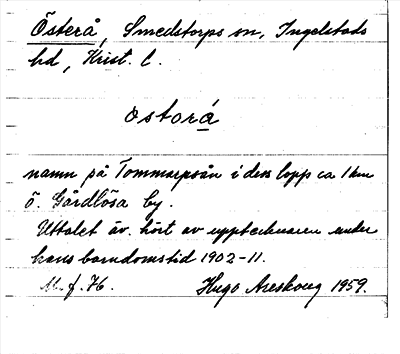 Österå, Smedstorps sn, Ingelstads
hd, Krist. l.
ostorá
namn på Tommarpsån i dess lopp ca 1 km
ö. Gårdlösa by.
Uttalet äv. hört av upptecknaren under
hans barndomstid 1902-11.
M. f. 76. Hugo Areskoug 1959.